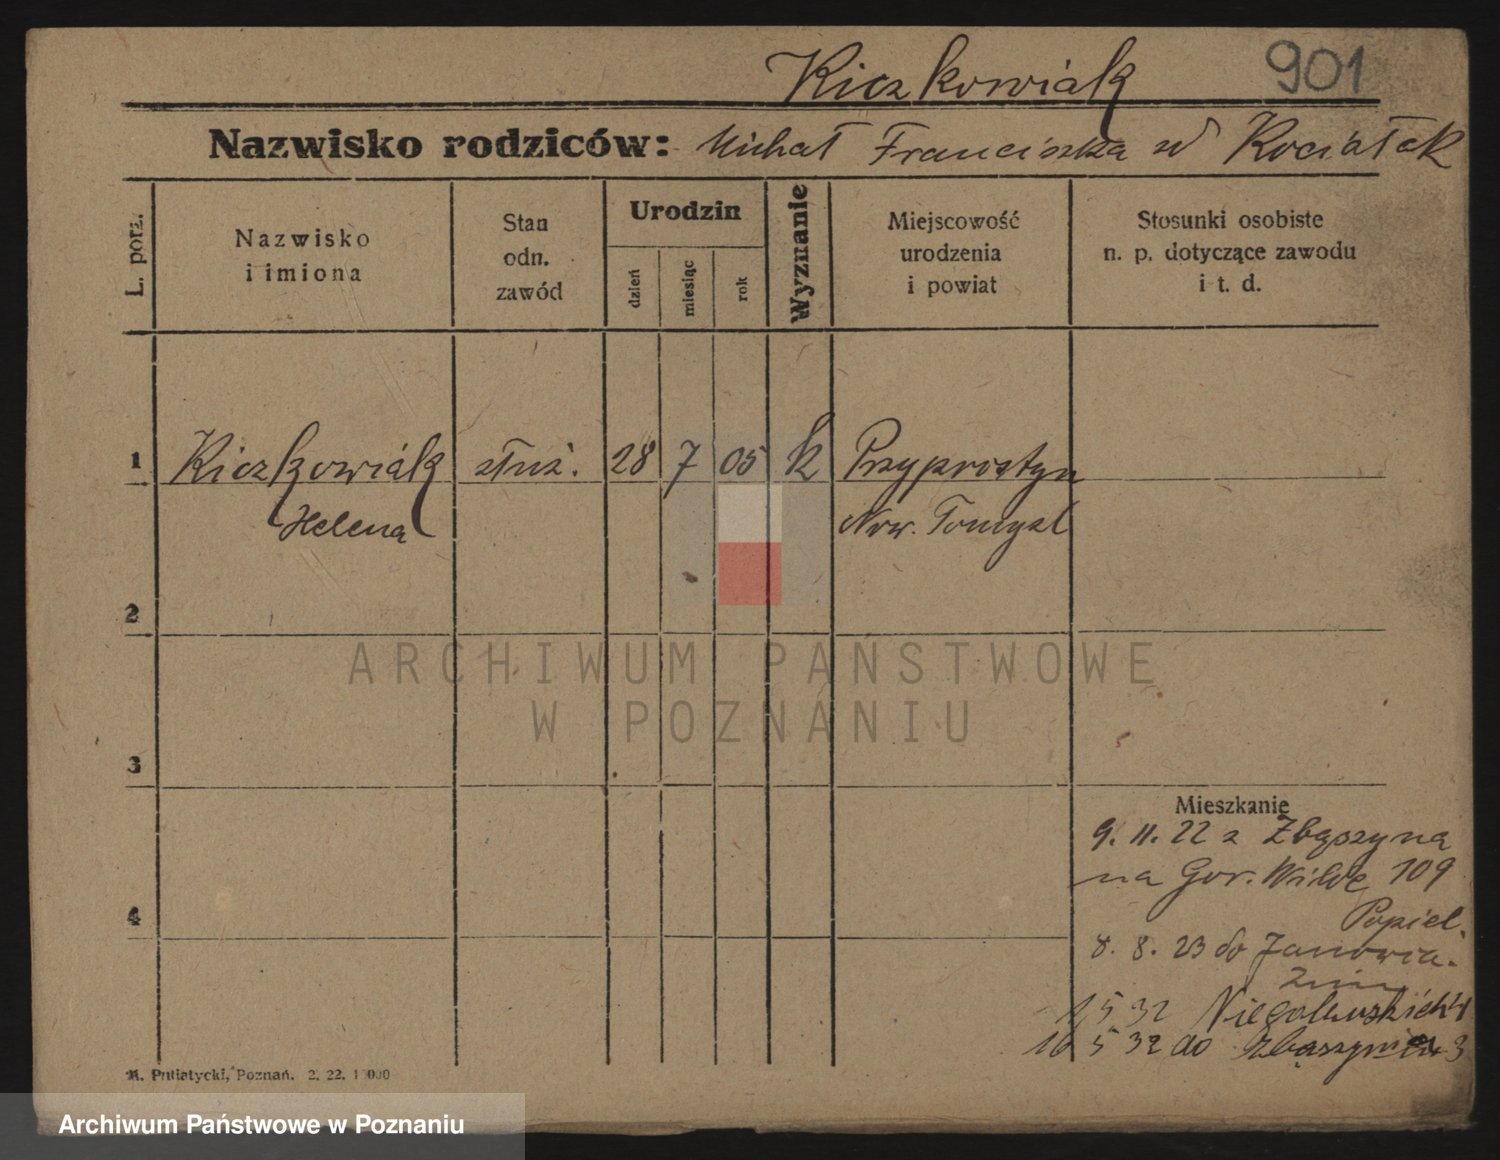 Kiczkowiak 901
Nazwisko rodziców: Michał Franciszka zd Kociałek
L. porz.
Nazwisko
i imiona
Stan
odn.
zawód
Urodzin
dzień
miesiąc
rok
Wyznanie
Miejscowość
urodzenia
i powiat
Stosunki osobiste
n. p. dotyczące zawodu
i t. d.
1 Kiczkowiak służ. 28 7 05 k Przyprostyn
Helena Now. Tomysl
2
ARCHIWUM PAŃSTWOWE
W POZNANIU
3
Mieszkanie
9. 11. 22 z Zbąszyna
na Gór. Wildę 109
4
Popiel.
8. 8. 23 do Janowca.
Żnin
1 5 32 Niegolewskich
16 5 32 do Zbąszynia 3
M. Putiatycki, Poznań. 2. 22. 1000
Archiwum Państwowe w Poznaniu